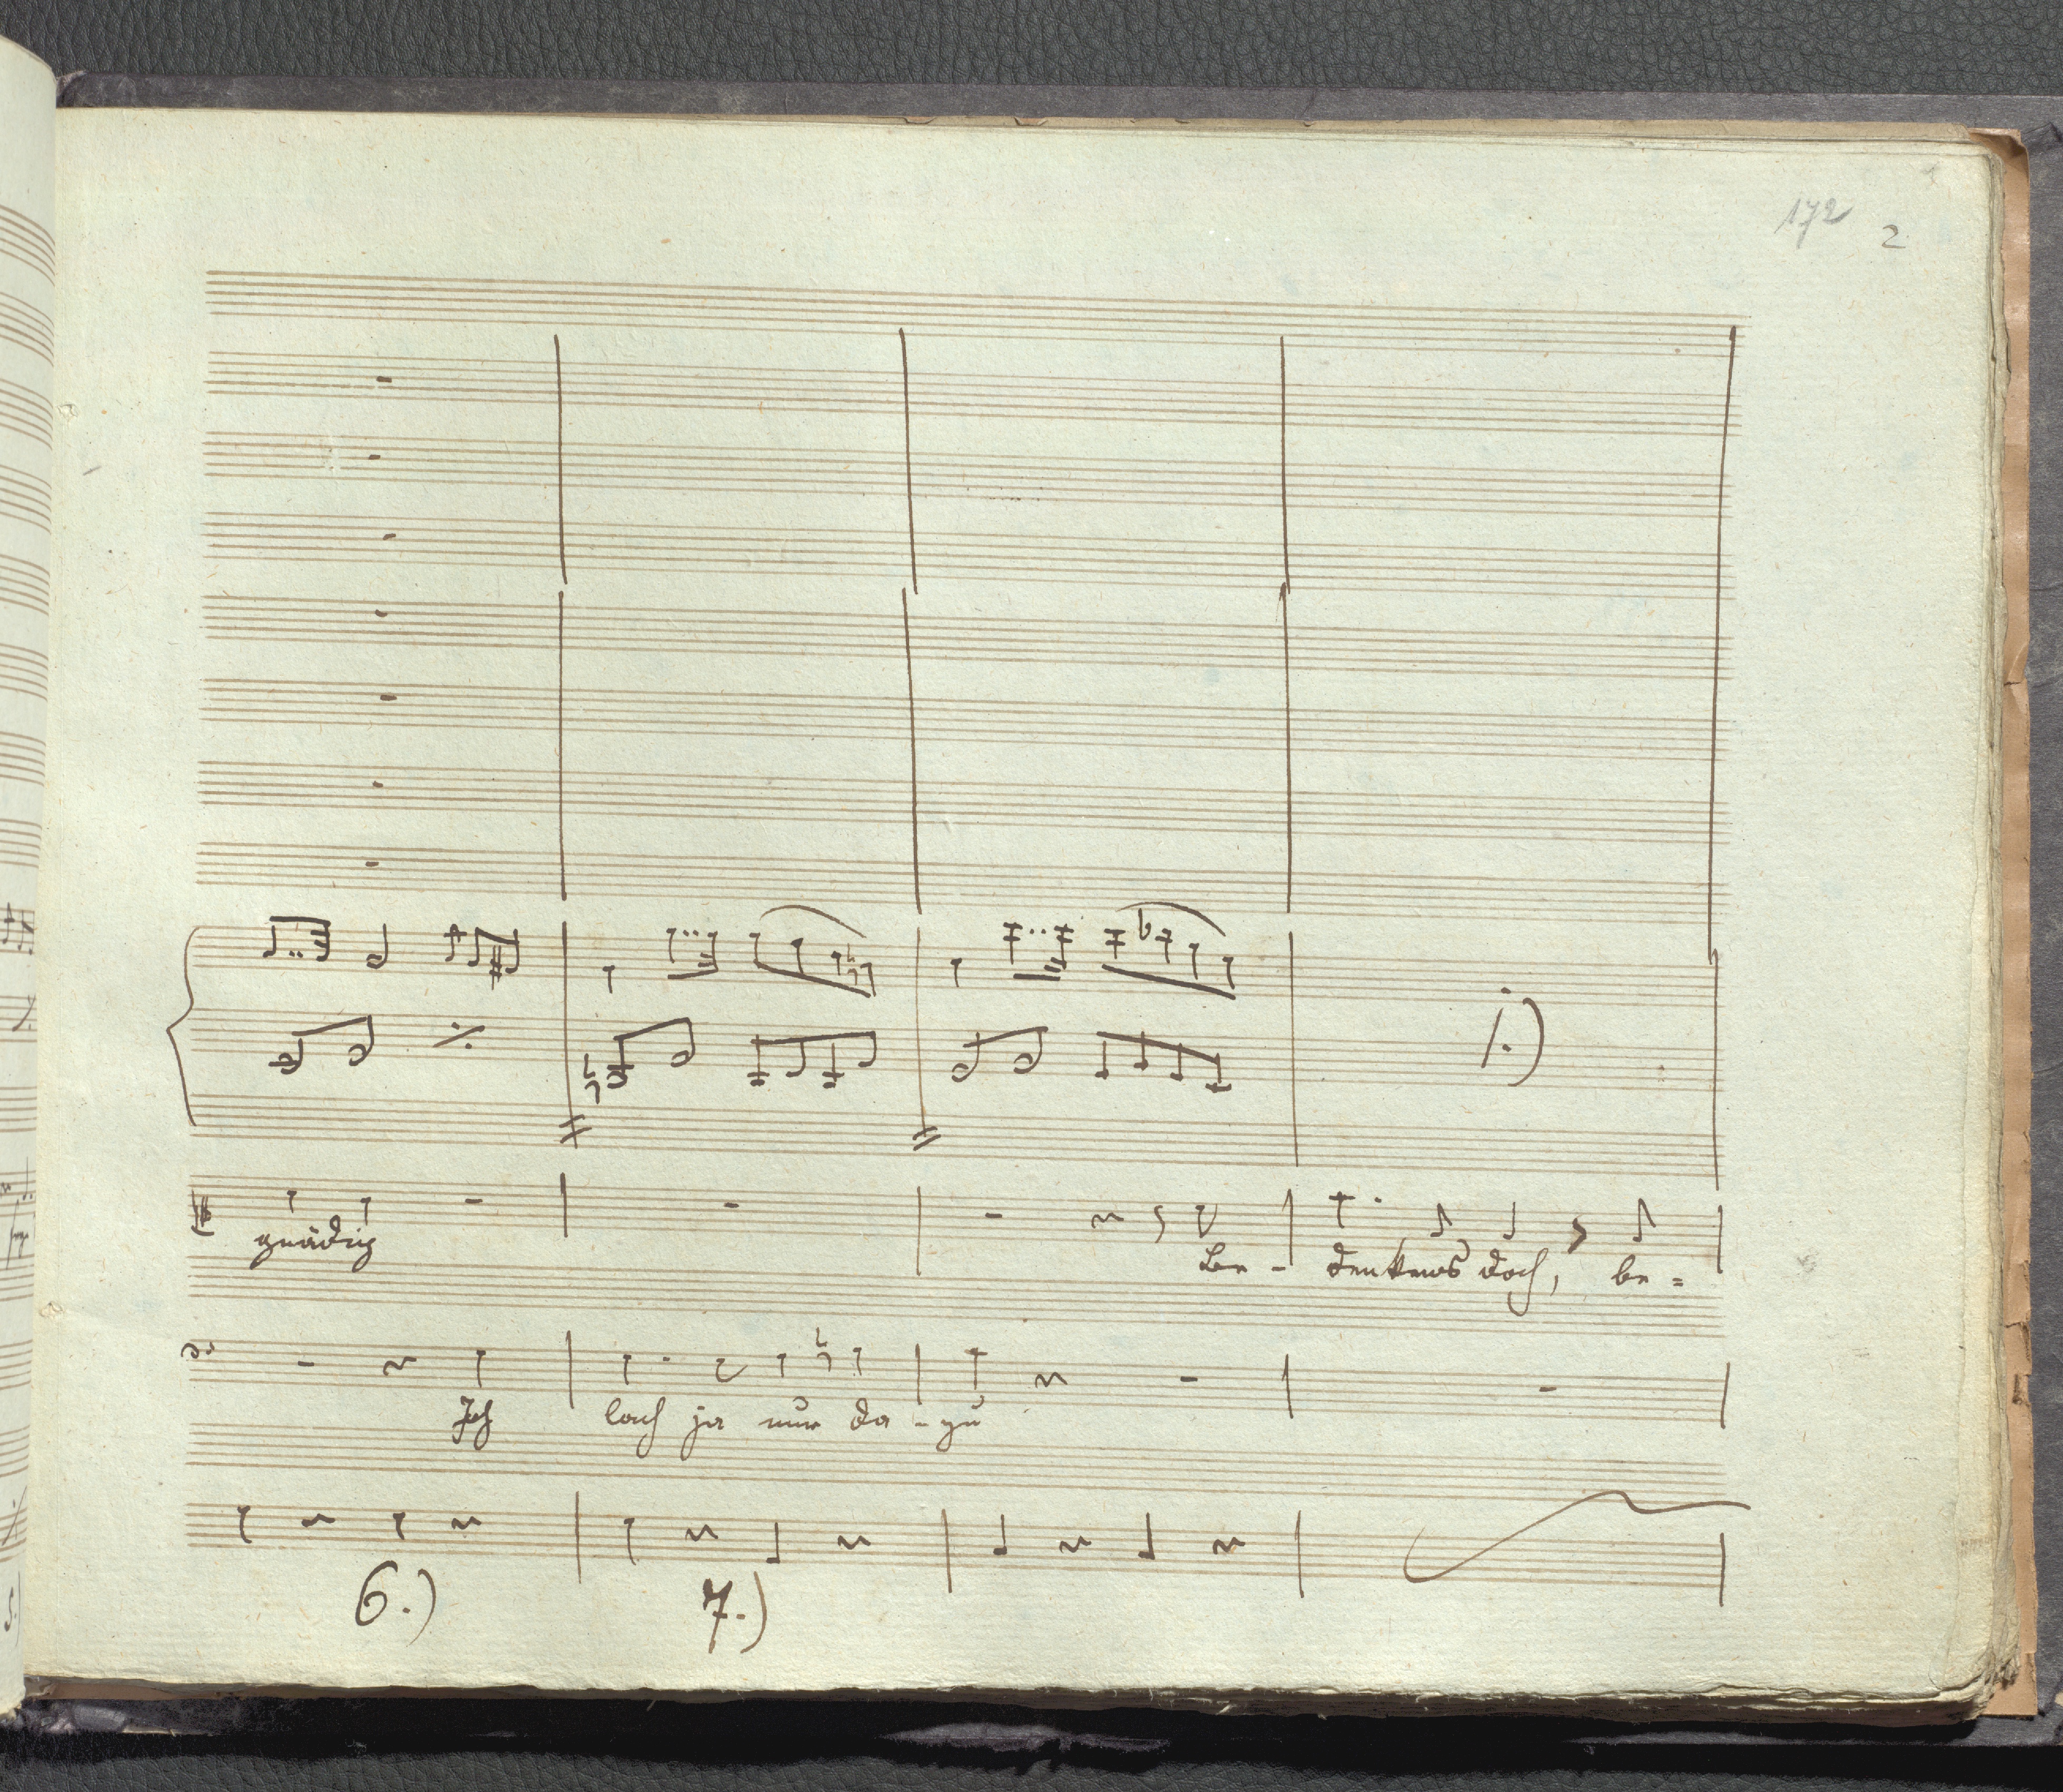 172 2
gnädig Be - denken's doch, be =
Ich lach ja nur da - zu
6.) 7.)
5.)